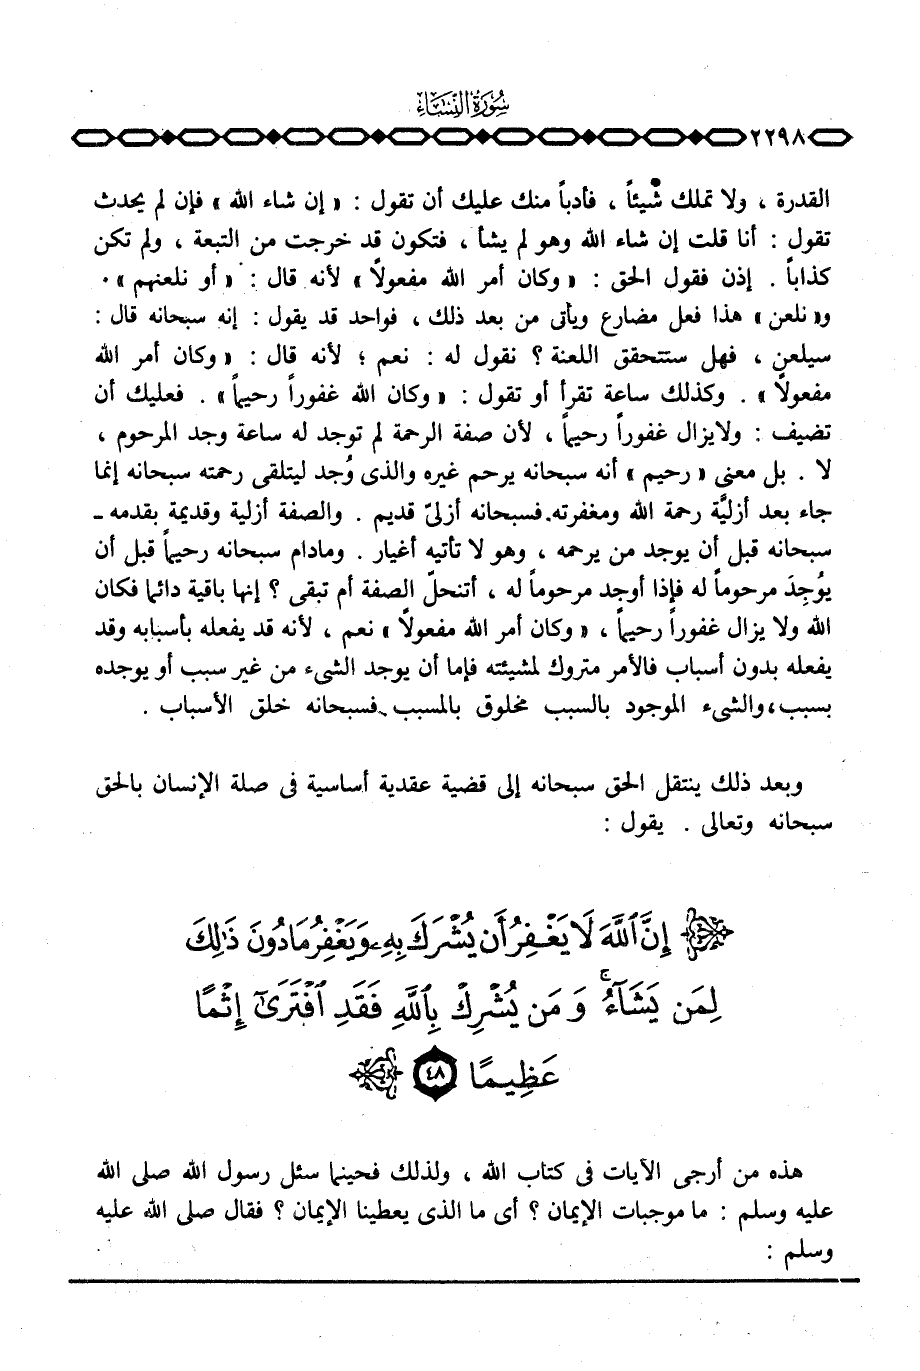 سُورَةُ النِّسَاءِ
٢٢٩٨
القدرة ، ولا تملك شيئاً ، فأدباً منك عليك أن تقول : « إن شاء الله » فإن لم يحدث
تقول : أنا قلت إن شاء الله وهو لم يشأ ، فتكون قد خرجت من التبعة ، ولم تكن
كذاباً . إذن فقول الحق : « وكان أمر الله مفعولاً » لأنه قال : « أو نلعنهم » .
و« نلعن » هذا فعل مضارع ويأتى من بعد ذلك ، فواحد قد يقول : إنه سبحانه قال :
سيلعن ، فهل ستتحقق اللعنة ؟ نقول له : نعم ؛ لأنه قال : « وكان أمر الله
مفعولاً » . وكذلك ساعة تقرأ أو تقول : « وكان الله غفوراً رحيماً » . فعليك أن
تضيف : ولايزال غفوراً رحيماً ، لأن صفة الرحمة لم توجد له ساعة وجد المرحوم ،
لا . بل معنى « رحيم » أنه سبحانه يرحم غيره والذى وُجد ليتلقى رحمته سبحانه إنما
جاء بعد أزليَّة رحمة الله ومغفرته. فسبحانه أزلىّ قديم . والصفة أزلية وقديمة بقدمه ـ
سبحانه قبل أن يوجد من يرحمه ، وهو لا تأتيه أغيار . ومادام سبحانه رحيماً قبل أن
يوُجِدَ مرحوماً له فإذا أوجد مرحوماً له ، أتنحلّ الصفة أم تبقى ؟ إنها باقية دائما فكان
الله ولا يزال غفوراً رحيماً ، « وكان أمر الله مفعولاً » نعم ، لأنه قد يفعله بأسبابه وقد
يفعله بدون أسباب فالأمر متروك لمشيئته فإما أن يوجد الشىء من غير سبب أو يوجده
بسبب، والشىء الموجود بالسبب مخلوق بالمسبب . فسبحانه خلق الأسباب .
وبعد ذلك ينتقل الحق سبحانه إلى قضية عقدية أساسية فى صلة الإنسان بالحق
سبحانه وتعالى . يقول :
إِنَّ ٱللَّهَ لَا يَغْفِرُ أَن يُشْرَكَ بِهِۦ وَيَغْفِرُ مَا دُونَ ذَٰلِكَ
لِمَن يَشَآءُ ۚ وَمَن يُشْرِكْ بِٱللَّهِ فَقَدِ ٱفْتَرَىٰٓ إِثْمًا
عَظِيمًا ٤٨
هذه من أرجى الآيات فى كتاب الله ، ولذلك فحينما سئل رسول الله صلى الله
عليه وسلم : ما موجبات الإيمان ؟ أى ما الذى يعطينا الإيمان ؟ فقال صلى الله عليه
وسلم :